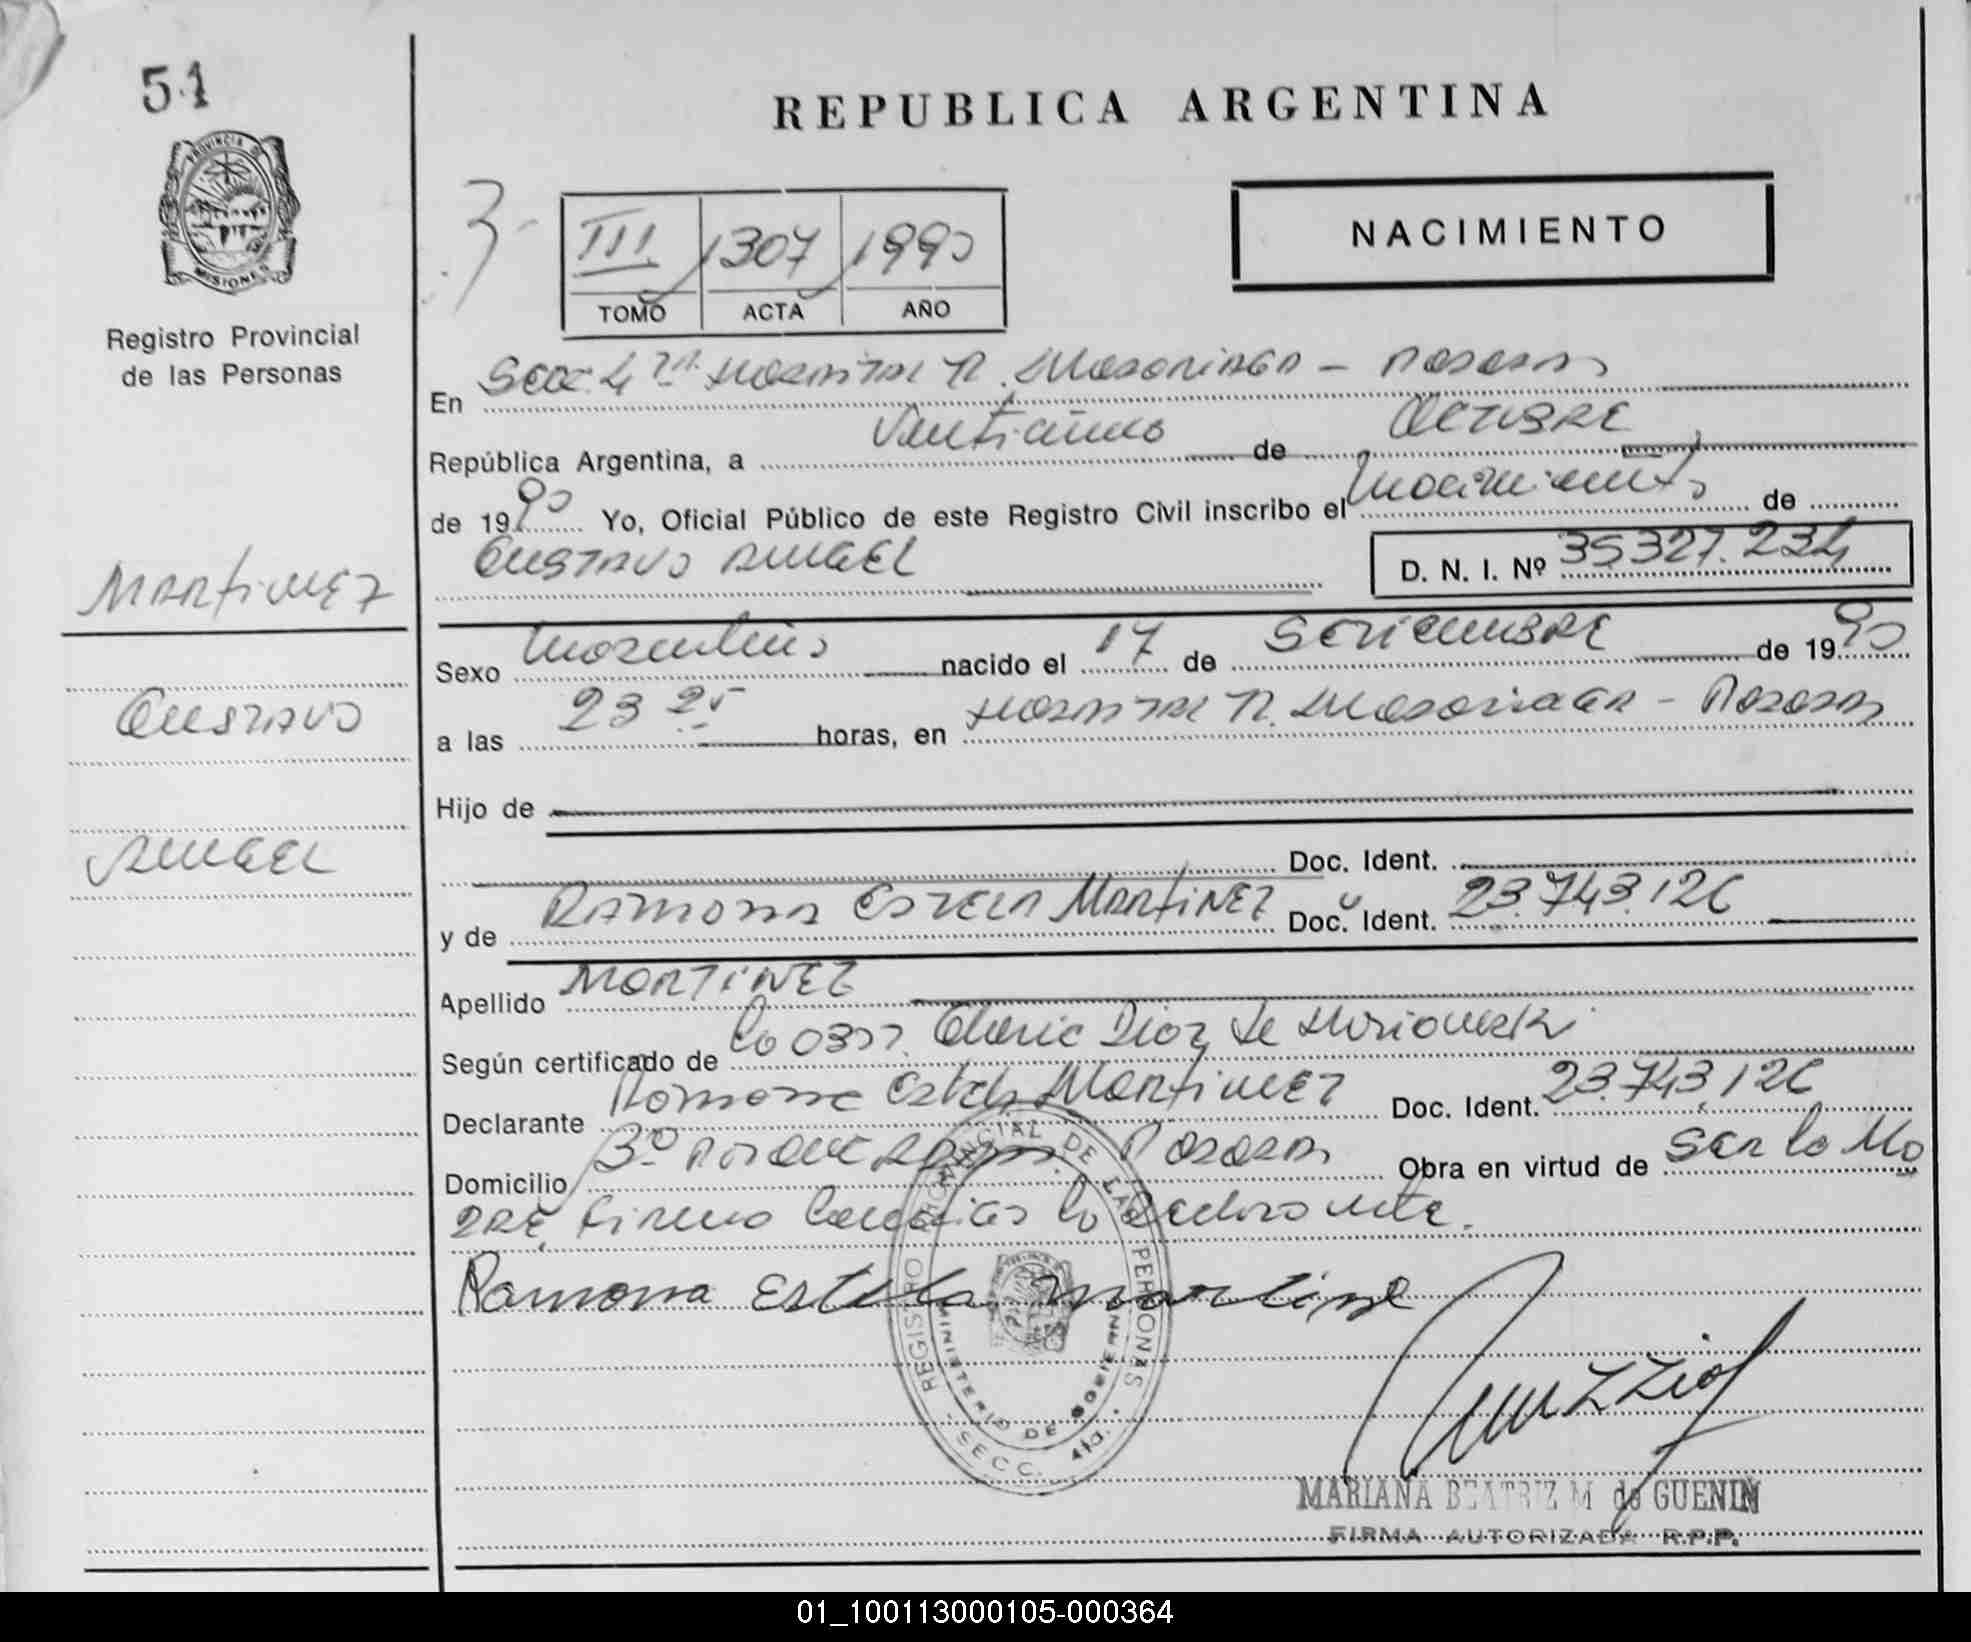 51
REPUBLICA ARGENTINA
PROVINCIA DE
MISIONES
Registro Provincial
de las Personas
3
III 1307 1990
TOMO ACTA AÑO
NACIMIENTO
En Secc 4ta. Hospital R. Madariaga - Posadas
República Argentina, a Veintiuno de Octubre
de 1990 Yo, Oficial Público de este Registro Civil inscribo el Nacimiento de
Gustavo Angel D. N. I. Nº 35327.234
Martinez
Gustavo
Angel
Sexo Masculino nacido el 17 de Setiembre de 1990
a las 23 25 horas, en Hospital R. Madariaga - Posadas
Hijo de
Doc. Ident.
y de Ramona Estela Martinez Doc. Ident. 23.743.126
Apellido Martinez
Según certificado de la Obst. Diaz de
Declarante Ramona Estela Martinez Doc. Ident. 23.743.126
Domicilio Posadas Obra en virtud de ser la Ma
dre, Firma la Declarante.
Ramona Estela Martinez
REGISTRO PROVINCIAL DE LAS PERSONAS
MINISTERIO DE GOBIERNO
SECC. 4ta.
MARIANA BEATRIZ M de GUENIN
FIRMA AUTORIZADA R.P.P.
01_100113000105-000364